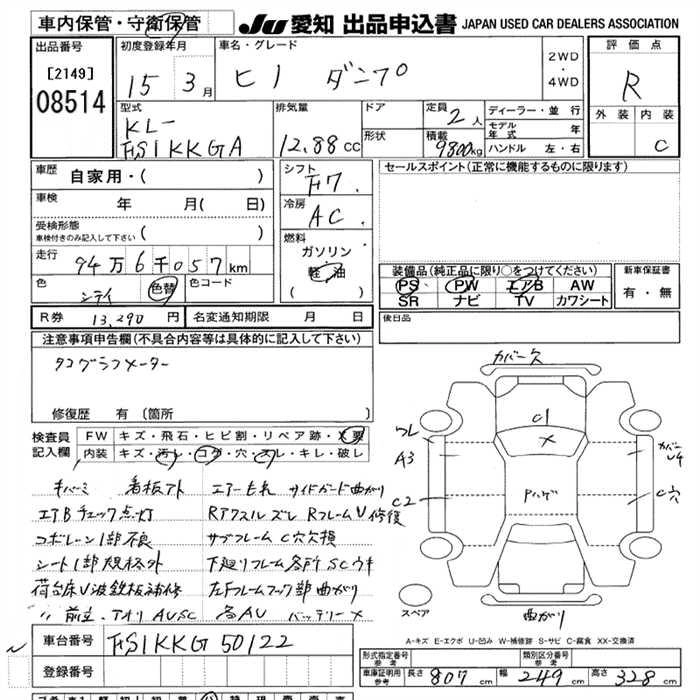 車内保管・守衛保管
JU 愛知 出品申込書 JAPAN USED CAR DEALERS ASSOCIATION
出品番号
[2149]
08514
初度登録年月
15 3月
車名・グレード
ヒノ ダンプ
2WD
・
4WD
評価点
R
外装 内装
C
型式
KL-
FS1KKGA
排気量
12.88 cc
ドア
形状
定員 2人
積載 9800kg
ディーラー・並行
モデル年式 年
ハンドル 左・右
車歴
自家用・( )
車検
年 月( 日)
受検形態
車検付きのみ記入して下さい ( )
走行
94万6千057km
色
色替
色コード
シフト
F7
冷房
AC
燃料
ガソリン
軽油
( )
セールスポイント(正常に機能するものに限ります)
装備品(純正品に限り○をつけてください)
PS PW エアB AW
SR ナビ TV カワシート
新車保証書
有・無
R券 13,290円
名変通知期限 月 日
後日品
注意事項申告欄(不具合内容等は具体的に記入して下さい)
タコグラフメーター
修復歴 有 〔箇所
検査員記入欄
FW キズ・飛石・ヒビ割・リペア跡・X要
内装 キズ・汚レ・コゲ・穴・スレ・キレ・破レ
キバミ 看板アト エアーモレ サイドガード曲がり
エアBチェック点灯 Rアクスルズレ RフレームU修復
コボレーン1部不良 サブフレームC穴欠損
シート1部規格外 下廻りフレーム各所SCウキ
荷台床U波鉄板補修 左Fフレームフック部曲がり
〃 前立、アオリAUSC 各AU バッテリーX
カバー欠
C1
X
ワレ
A3
C2
Pハゲ
カバー
U4
C穴
スペア
曲がり
A-キズ E-エクボ U-凹み W-補修跡 S-サビ C-腐食 XX-交換済
車台番号
FS1KKG50122
登録番号
形式指定番号
参考
類別区分番号
参考
車庫証明用
参考
長さ 807cm
幅 249cm
高さ 328cm